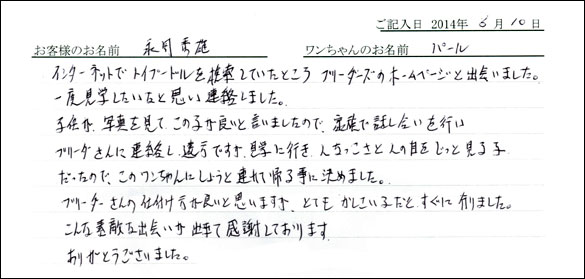 ご記入日 2014年 6月 10日
お客様のお名前 永月秀雄 ワンちゃんのお名前 パール
インターネットでトイプードルを検索していたところ ブリーダーズのホームページと出会いました。
一度見学したいなと思い連絡しました。
子供が、写真を見て、この子が良いと言いましたので、家族で話し合いを行い
ブリーダさんに連絡し、遠方ですが、見学に行き、人なつっこさと人の目をじっと見る子
だったので、このワンちゃんにしようと連れて帰る事に決めました。
ブリーダーさんの仕付け方が良いと思いますが、とても かしこい子だと、すぐに有りました。
こんな素敵な出会いが出来て感謝しております。
ありがとうございました。